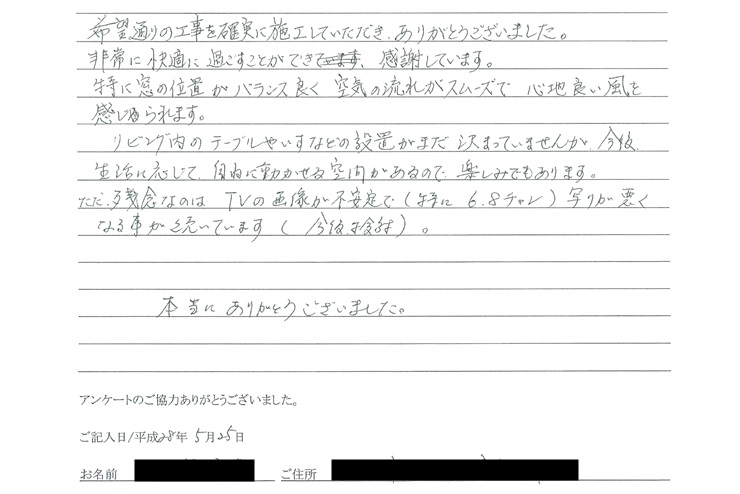 希望通りの工事を確実に施工していただき、ありがとうございました。
非常に快適に過ごすことができて、感謝しています。
特に窓の位置がバランス良く 空気の流れがスムーズで 心地良い風を
感じられます。
リビング内のテーブルやいすなどの設置がまだ決まっていませんが、今後、
生活に応じて、自由に動かせる空間があるので、楽しみでもあります。
ただ、残念なのは TVの画像が不安定で(特に 6.8チャンネル)写りが悪く
なる事が続いています(今後検討)。
本当にありがとうございました。
アンケートのご協力ありがとうございました。
ご記入日/平成28年 5月25日
お名前 ご住所